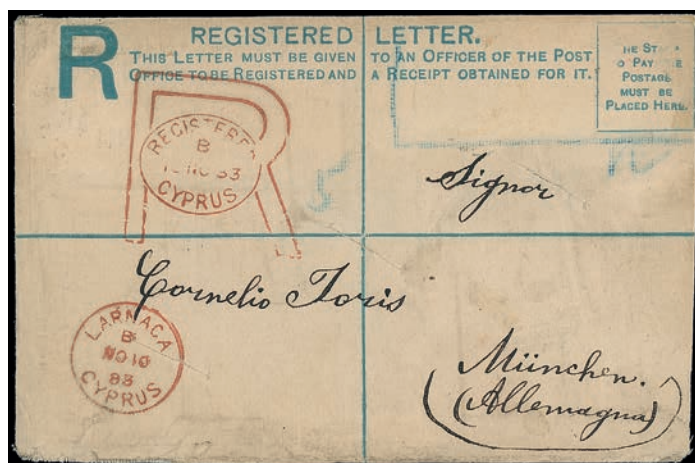 R
REGISTERED LETTER.
THIS LETTER MUST BE GIVEN TO AN OFFICER OF THE POST
OFFICE TO BE REGISTERED AND A RECEIPT OBTAINED FOR IT.
POSTAGE
MUST BE
PLACED HERE.
R
REGISTERED
B
CYPRUS
Signor
Cornelio Joris
LARNACA
B
NO 10
83
CYPRUS
München.
(Allemagna)